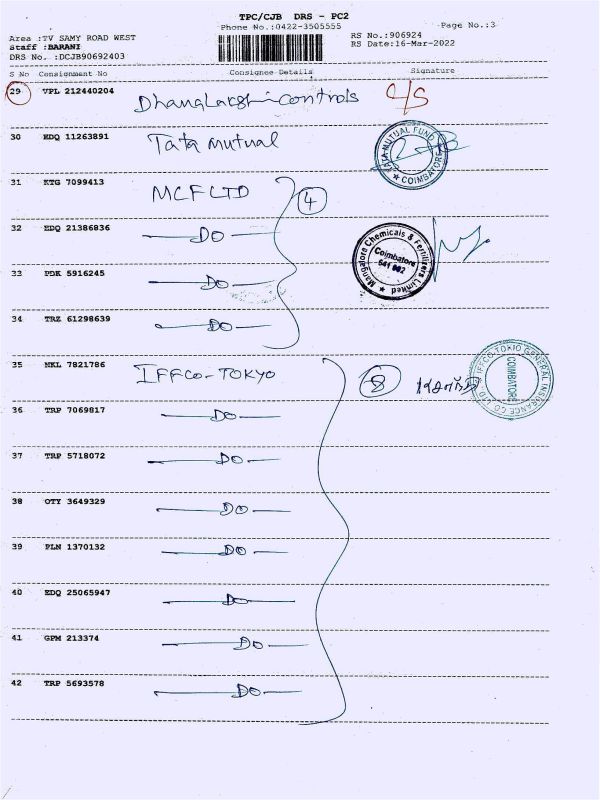 TPC/CJB DRS - PC2
Phone No.:0422-3505555
Page No.:3
Area :TV SAMY ROAD WEST
RS No.:906924
Staff :BARANI
RS Date:16-Mar-2022
DRS No. :DCJB90692403
S No Consignment No Consignee Details Signature
29 VPL 212440204 Dhanalakshi controls C/S
30 EDQ 11263891 Tata mutual
TATA MUTUAL FUND
* COIMBATORE *
31 KTG 7099413 MCF LTD 4
32 EDQ 21386836 DO
Mangalore Chemicals & Fertilizers Limited
Coimbatore
641 002
33 PDK 5916245 DO
34 TRZ 61298639 DO
35 NKL 7821786 IFFCO-TOKYO 8
IFFCO-TOKIO GENERAL INSURANCE CO. LTD.
COIMBATORE
36 TRP 7069817 DO
37 TRP 5718072 DO
38 OTY 3649329 DO
39 PLN 1370132 DO
40 EDQ 25065947 DO
41 GPM 213374 DO
42 TRP 5693578 DO